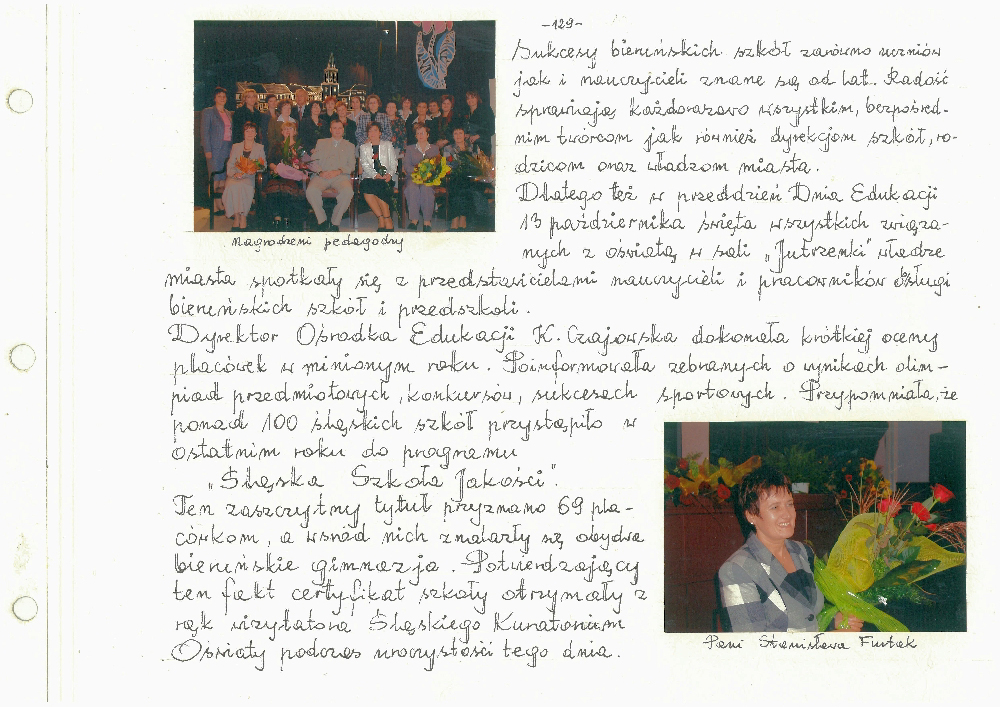 -129-
Sukcesy bieruńskich szkół zarówno uczniów
jak i nauczycieli znane są od lat. Radość
sprawiają każdorazowo wszystkim, bezpośred-
nim twórcom jak również dyrekcjom szkół, ro-
dzicom oraz władzom miasta.
Dlatego też w przeddzień Dnia Edukacji
13 października święta wszystkich związa-
nych z oświatą w sali „Jutrzenki" władze
Nagrodzeni pedagodzy
miasta spotkały się z przedstawicielami nauczycieli i pracowników obsługi
bieruńskich szkół i przedszkoli.
Dyrektor Ośrodka Edukacji K. Czajowska dokonała krótkiej oceny
placówek w minionym roku. Poinformowała zebranych o wynikach olim-
piad przedmiotowych, konkursów, sukcesach sportowych. Przypomniała, że
ponad 100 śląskich szkół przystąpiło w
ostatnim roku do programu
„Śląska Szkoła Jakości".
Ten zaszczytny tytuł przyznano 69 pla-
cówkom, a wśród nich znalazły się obydwa
bieruńskie gimnazja. Potwierdzający
ten fakt certyfikat szkoły otrzymały z
rąk wizytatora Śląskiego Kuratorium
Oświaty podczas uroczystości tego dnia.
Pani Stanisława Furtak